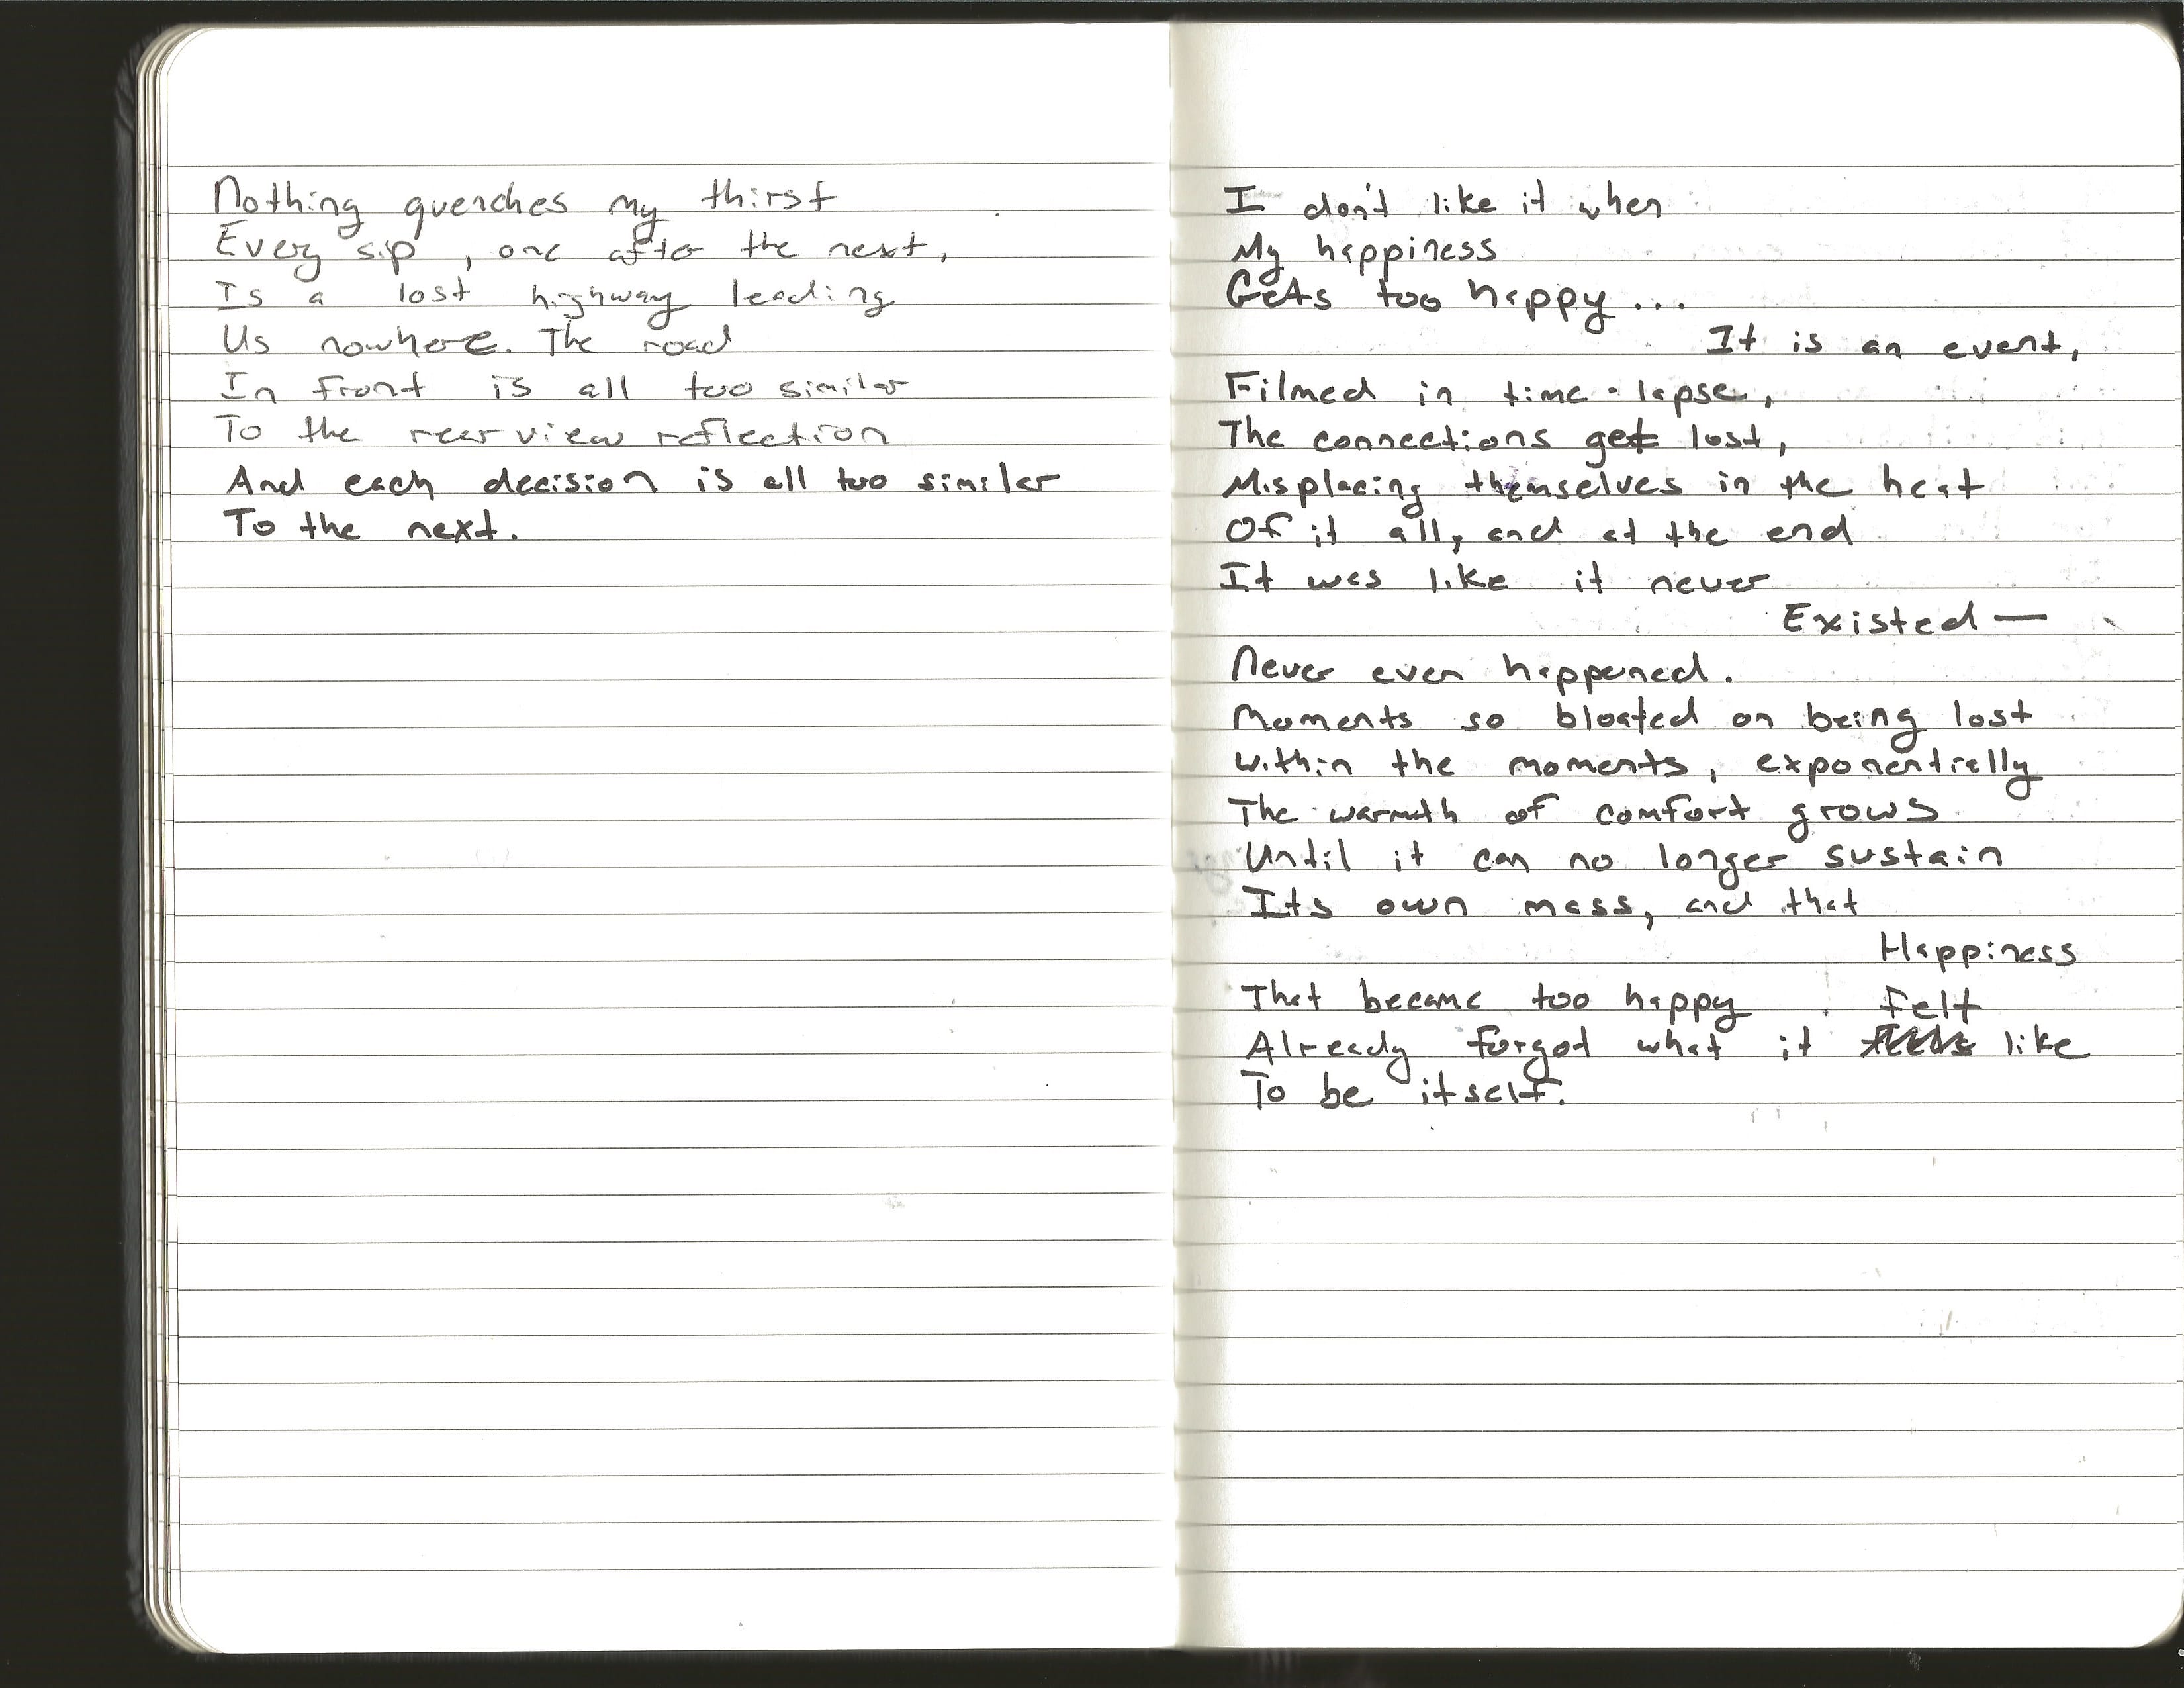 Nothing quenches my thirst
Every sip, one after the next,
Is a lost highway leading
Us nowhere. The road
In front is all too similar
To the rearview reflection
And each decision is all too similar
To the next.
I don't like it when
My happiness
Gets too happy...
It is an event,
Filmed in time-lapse,
The connections get lost,
Misplacing themselves in the heat
Of it all, and at the end
It was like it never
Existed—
Never even happened.
Moments so bloated on being lost
within the moments, exponentially
The warmth of comfort grows
Until it can no longer sustain
Its own mass, and that
Happiness
That became too happy
felt
Already forgot what it like
To be itself.